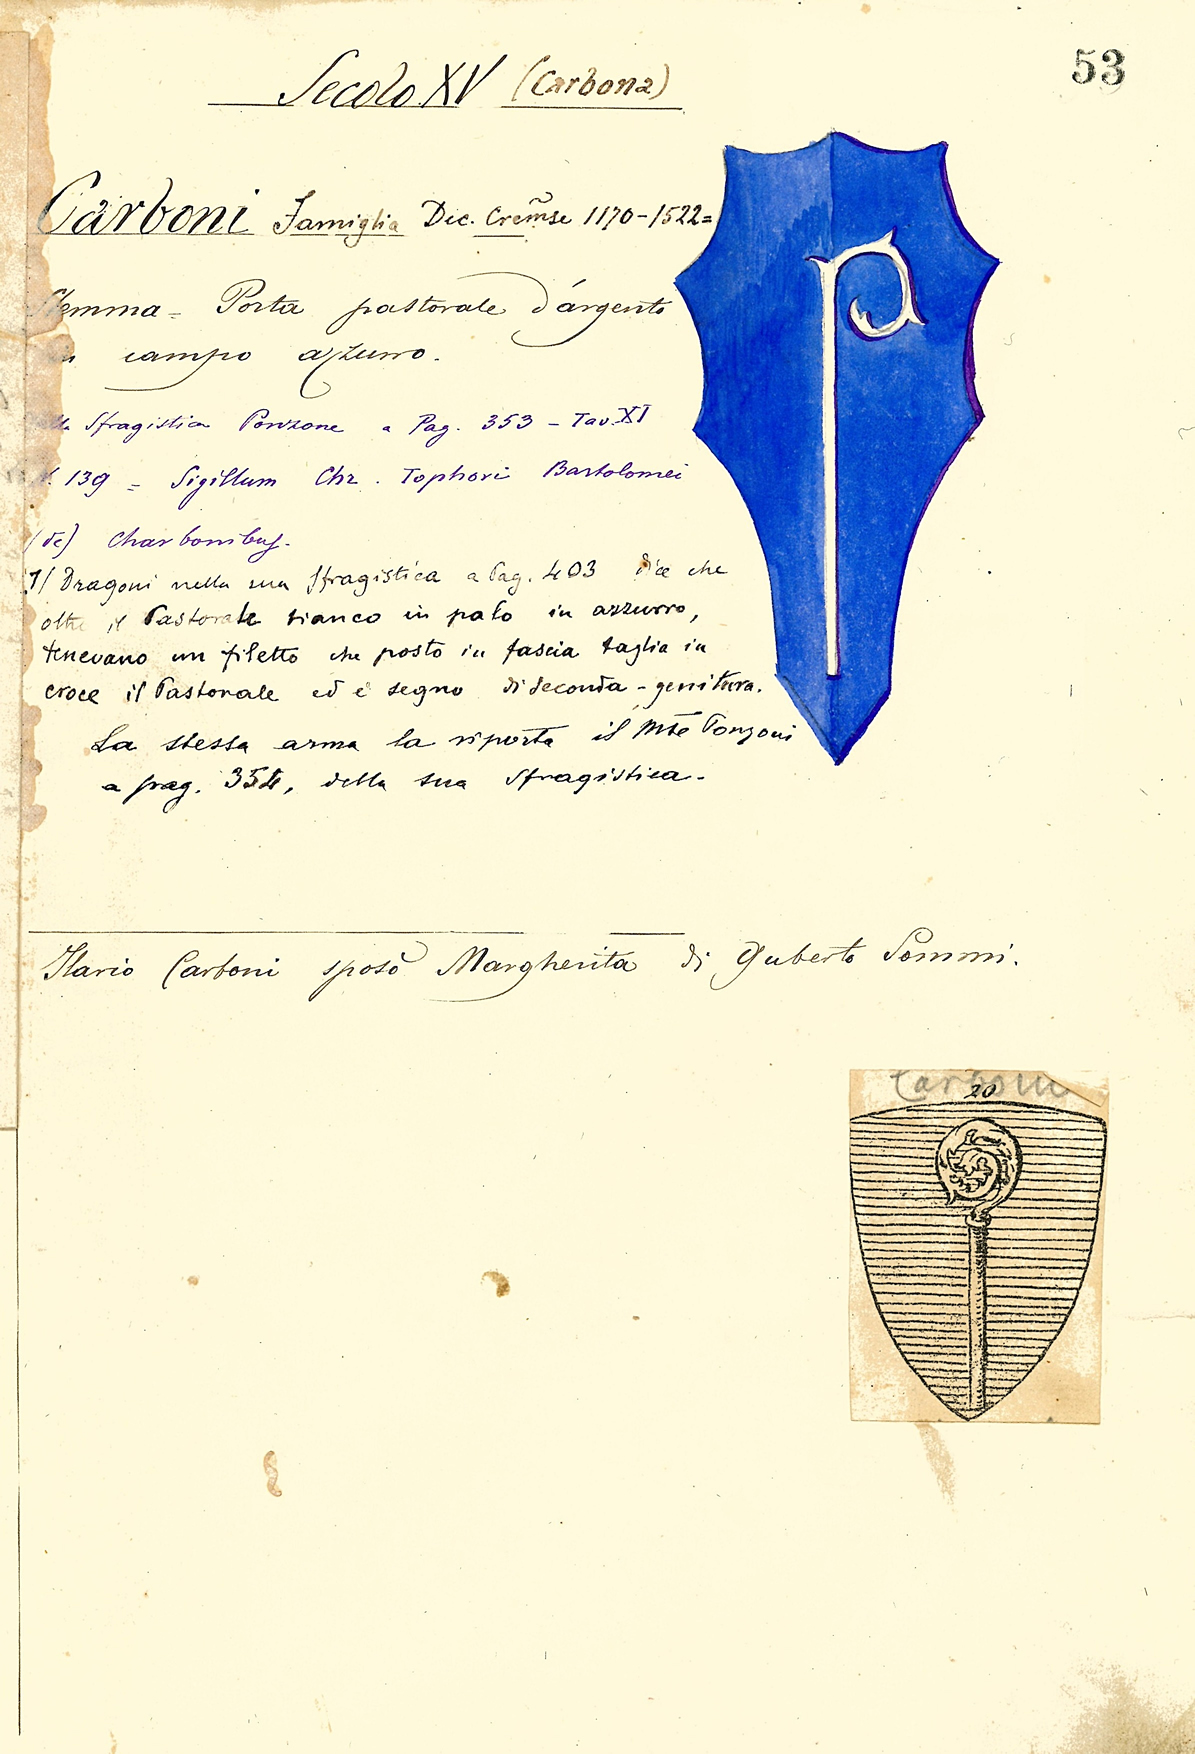 53
Secolo XV (Carbona)
Carboni Famiglia Dec. Cremse 1170-1522=
Stemma = Porta pastorale d'argento
in campo azzurro.
Sfragistica Ponzone a Pag. 353 - Tav. XI
N. 139 = Sigillum Chr. Tophori Bartolomei
(de) Charbonibus.
Il Dragoni nella sua Sfragistica a Pag. 403 dice che
oltre il Pastorale bianco in palo in azzurro,
tenevano un filetto che posto in fascia taglia in
croce il Pastorale ed è segno di seconda-genitura.
La stessa arma la riporta il Mse Ponzoni
a pag. 354, della sua Sfragistica.
Ilario Carboni sposò Margherita di Guberto Sommi.
Carboni
20